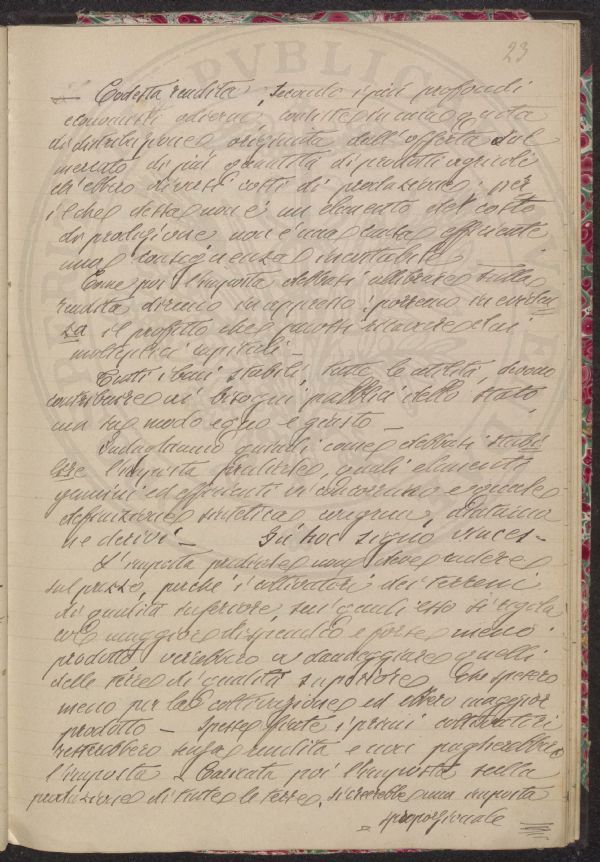 23
— Codesta rendita, secondo i più profondi
economisti odierni, consiste in una quota
di distribuzione originata dall'offerta sul
mercato di più quantità di prodotti agricoli
ch'ebbero diversi costi di produzione; per
il che dessa non è un elemento del costo
di produzione non è una causa efficiente
una conseguenza inevitabile.
Come poi l'imposta debbasi sulla
rendita diremo in appresso: porremo in eviden
za il profitto che puossi ricavare dai
molteplici capitali —
Tutti i beni stabili, tutte le utilità, devono
contribuire ai bisogni pubblici dello Stato,
ma in modo equo e giusto —
Indaghiamo quindi come debbasi stabi
lire l'imposta prediale, quali elementi
genuini ed efficienti vi concorrano e quale
definizione sintetica
ne derivi — In hoc signo vinces —
L'imposta prediale non deve cadere
sul prezzo, perché i coltivatori dei terreni
di qualità inferiore, sui quali esso si regola
con maggiore dispendio e forse meno
prodotto verrebbero a danneggiare quelli
delle terre di qualità superiore che spesero
meno per la coltivazione ed ebbero maggior
prodotto — Spesse fiate i primi coltivatori
resterebbero senza rendita e non pagherebbero
l'imposta. Caricata poi l'imposta sulla
produzione di tutte le terre, si avrebbe una imposta
proporzionale